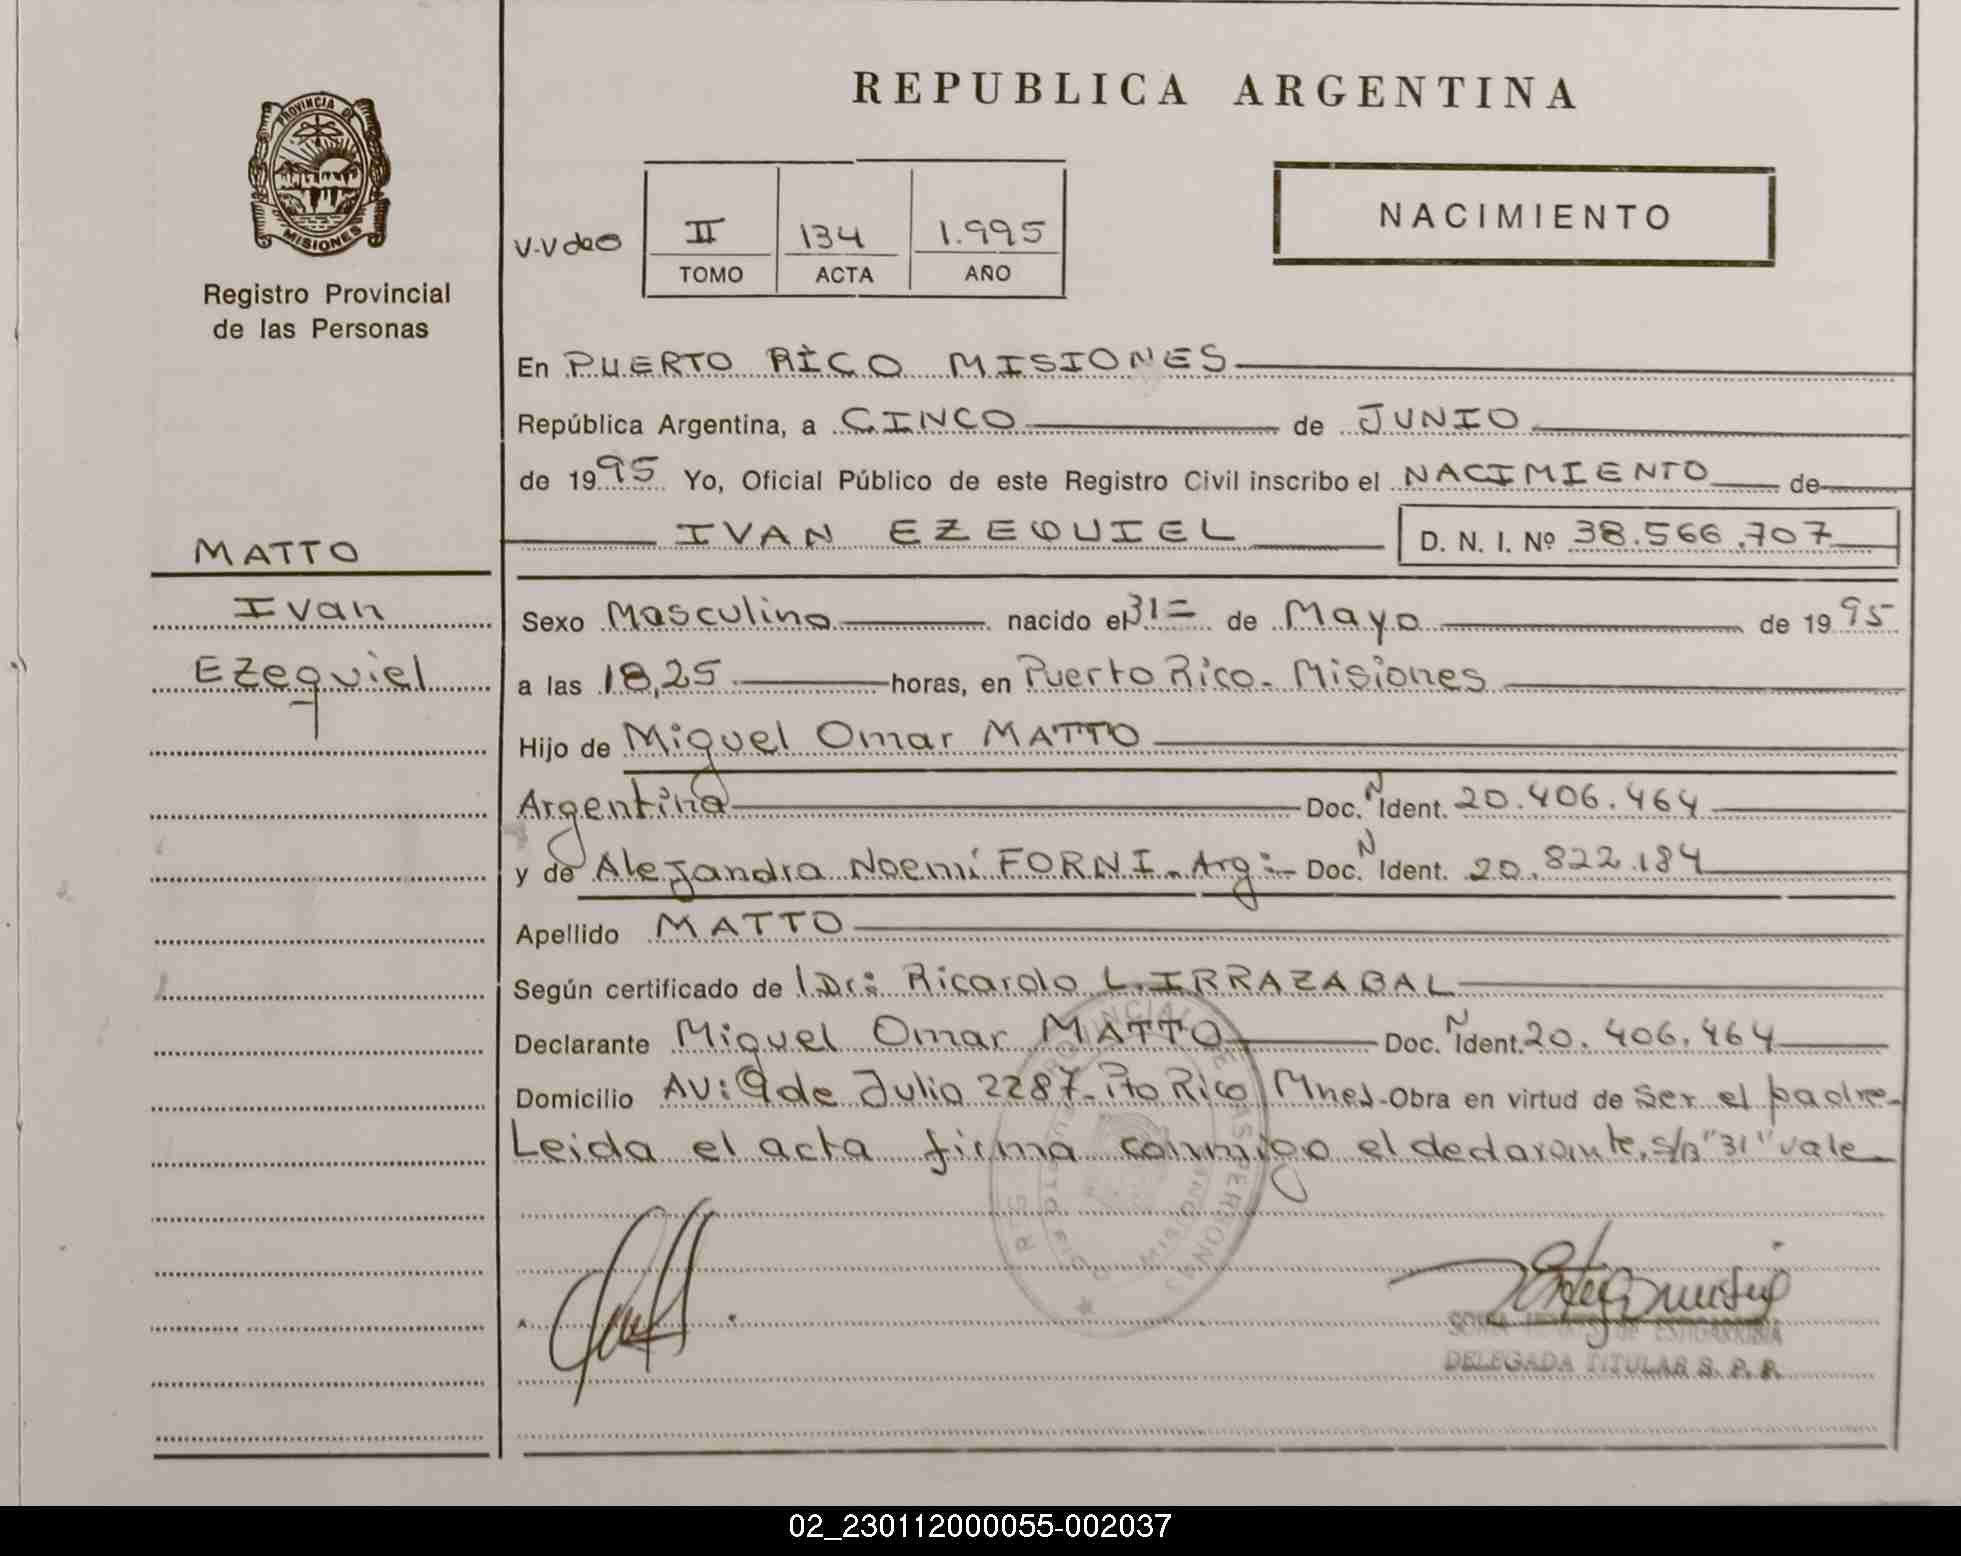 REPUBLICA ARGENTINA
PROVINCIA DE
MISIONES
Registro Provincial
de las Personas
V.V deo
II 134 1.995
TOMO ACTA AÑO
NACIMIENTO
En PUERTO RICO MISIONES
República Argentina, a CINCO de JUNIO
de 1995 Yo, Oficial Público de este Registro Civil inscribo el NACIMIENTO de
IVAN EZEQUIEL D. N. I. Nº 38.566.707
MATTO
Ivan
Ezequiel
Sexo Masculino nacido el 31= de Mayo de 1995
a las 18,25 horas, en Puerto Rico - Misiones
Hijo de Miguel Omar MATTO
Argentina Doc. N Ident. 20.406.464
y de Alejandra Noemí FORNI - Arg:- Doc. N Ident. 20.822.184
Apellido MATTO
Según certificado de Dr: Ricardo L. IRRAZABAL
Declarante Miguel Omar MATTO Doc. N Ident. 20.406.464
Domicilio AV: 9 de Julio 2287 - Pto Rico Mnes - Obra en virtud de ser el padre -
Leida el acta firma conmigo el declarante. s/b "31" vale
DELEGADA TITULAR S. P. P.
02_230112000055-002037